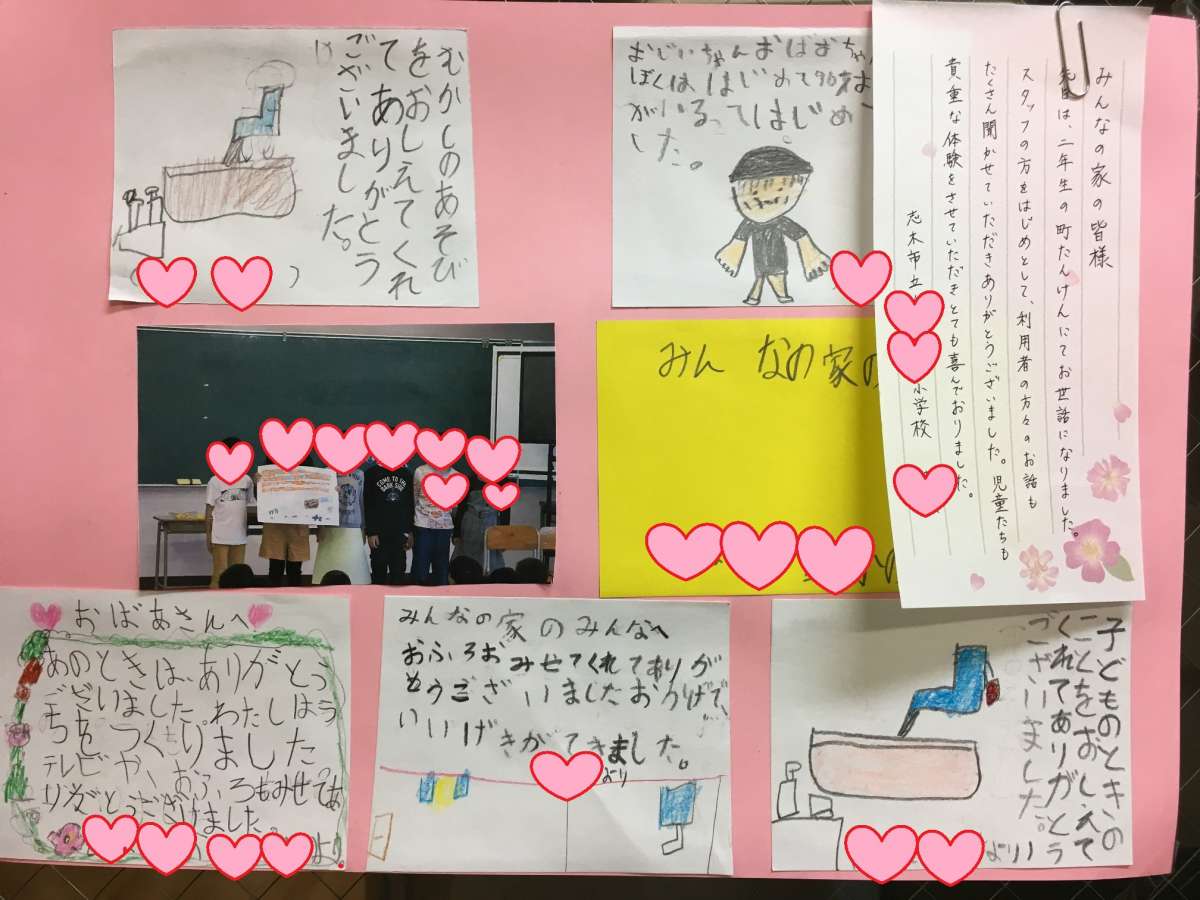 むかしのあそび
をおしえてくれ
てありがとう
ございました。
おじいちゃんおばあちゃ
ぼくははじめて90才
がいるってはじめ
した。
みんなの家の皆様
先日は、二年生の町たんけんにてお世話になりました。
スタッフの方をはじめとして、利用者の方々のお話も
たくさん聞かせていただきありがとうございました。児童たちも
貴重な体験をさせていただきとても喜んでおりました。
志木市立 小学校
COME TO THE
DARK SIDE
みんなの家の
おばあさんへ
あのときは、ありがとう
ございました。わたしはう
ちをつくりました
テレビや、おふろもみせてあ
りがとうござました。
より
みんなの家のみんなへ
おふろおみせてくれてありが
とうございましたおかげで、
いいげきがてきました。
より
子どものときの
ことをおしえて
くれてありがとう
ございました。
より